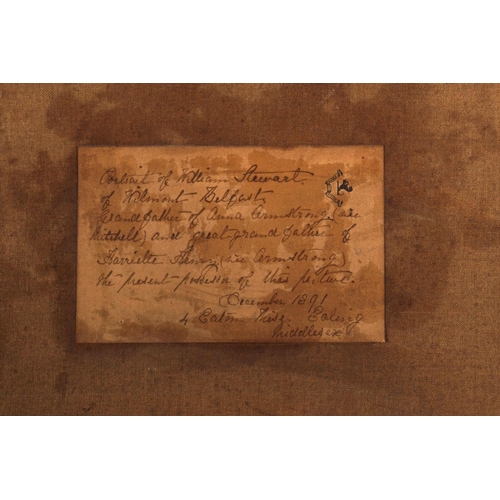 Portrait of William Stewart
of Wilmont Belfast
Grandfather of Anna Armstrong (née
Mitchell) and great-grandfather of
Harriette Henry (née Armstrong)
the present possessor of this picture.
December 1891
4 Eaton Rise. Ealing
Middlesex